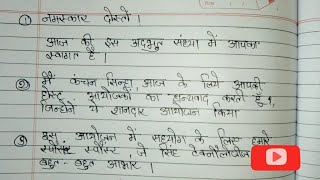 ① नमस्कार दोस्तों ।
आज की इस अदभुत संध्या में आपका
स्वागत है ।
② मैं कंचन सिन्हा, आज के लिये आपकी
होस्ट आयोजकों का धन्यवाद करती हूँ,
जिन्होंने ये शानदार आयोजन किया
③ इस आयोजन में सहयोग के लिए हमारे
स्पॉन्सर जे सिंह
बहुत-बहुत आभार ।